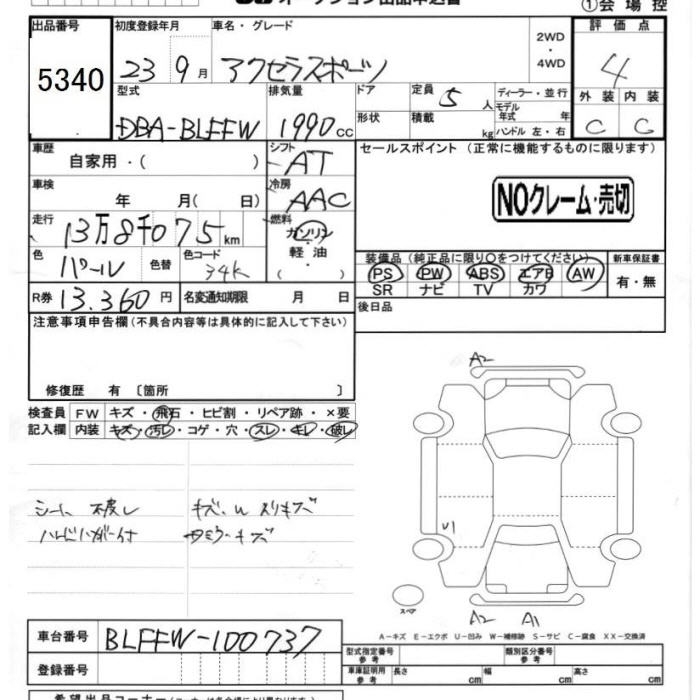 オークション出品申込書 ①会場控
出品番号 初度登録年月 車名・グレード 2WD・4WD 評価点
5340 23 9月 アクセラスポーツ 4
型式 排気量 ドア 定員 5人 ディーラー・並行 外装 内装
DBA-BLEFW 1990cc 形状 積載 kg モデル年式 年式 ハンドル 左・右 C C
車歴 自家用・( ) シフト AT セールスポイント(正常に機能するものに限ります)
車検 年 月( 日) 冷房 AAC NOクレーム・売切
走行 13万8千075km 燃料 ガソリン・軽油・( )
色 パール 色替 色コード 34K 装備品(純正品に限り○をつけてください) 新車保証書
PS PW ABS エアB AW 有・無
SR ナビ TV カワ
R券 13.360円 名変通知期限 月 日 後日品
注意事項申告欄(不具合内容等は具体的に記入して下さい)
修復歴 有 〔箇所 〕
検査員 FW キズ・飛石・ヒビ割・リペア跡・×要
記入欄 内装 キズ・汚レ・コゲ・穴・スレ・キレ・破レ
A2
シート
キズ、U
U1
スペア
A2 A1
A-キズ E-エクボ U-凹み W-補修跡 S-サビ C-腐食 XX-交換済
車台番号 BLEFW-100737
登録番号
型式指定番号 参考 類別区分番号 参考
車庫証明用 参考 長さ cm 幅 cm 高さ cm
希望出品コーナー